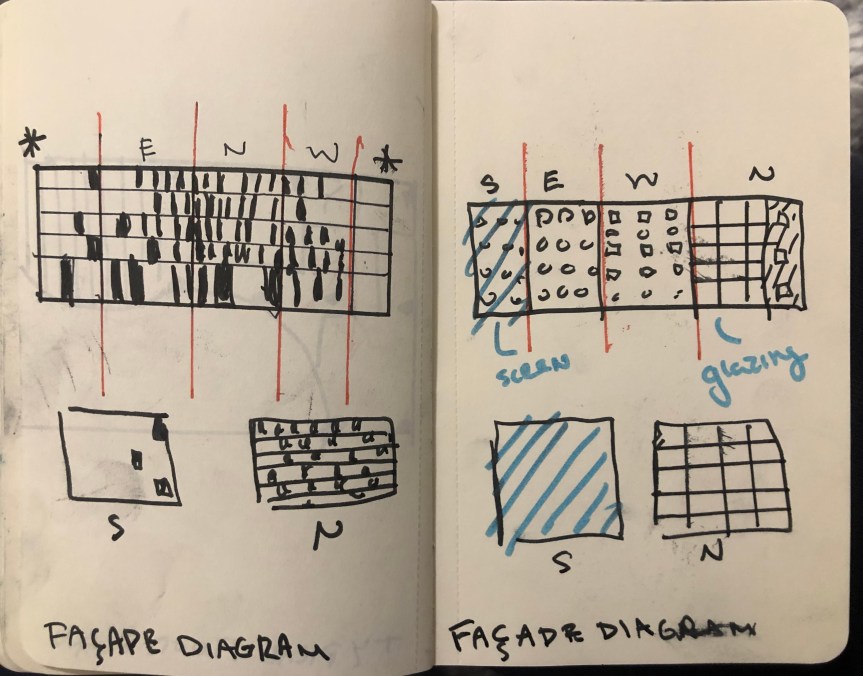 * E N W *
S N
FAÇADE DIAGRAM
S E W N
SCREEN glazing
S N
FAÇADE DIAGRAM